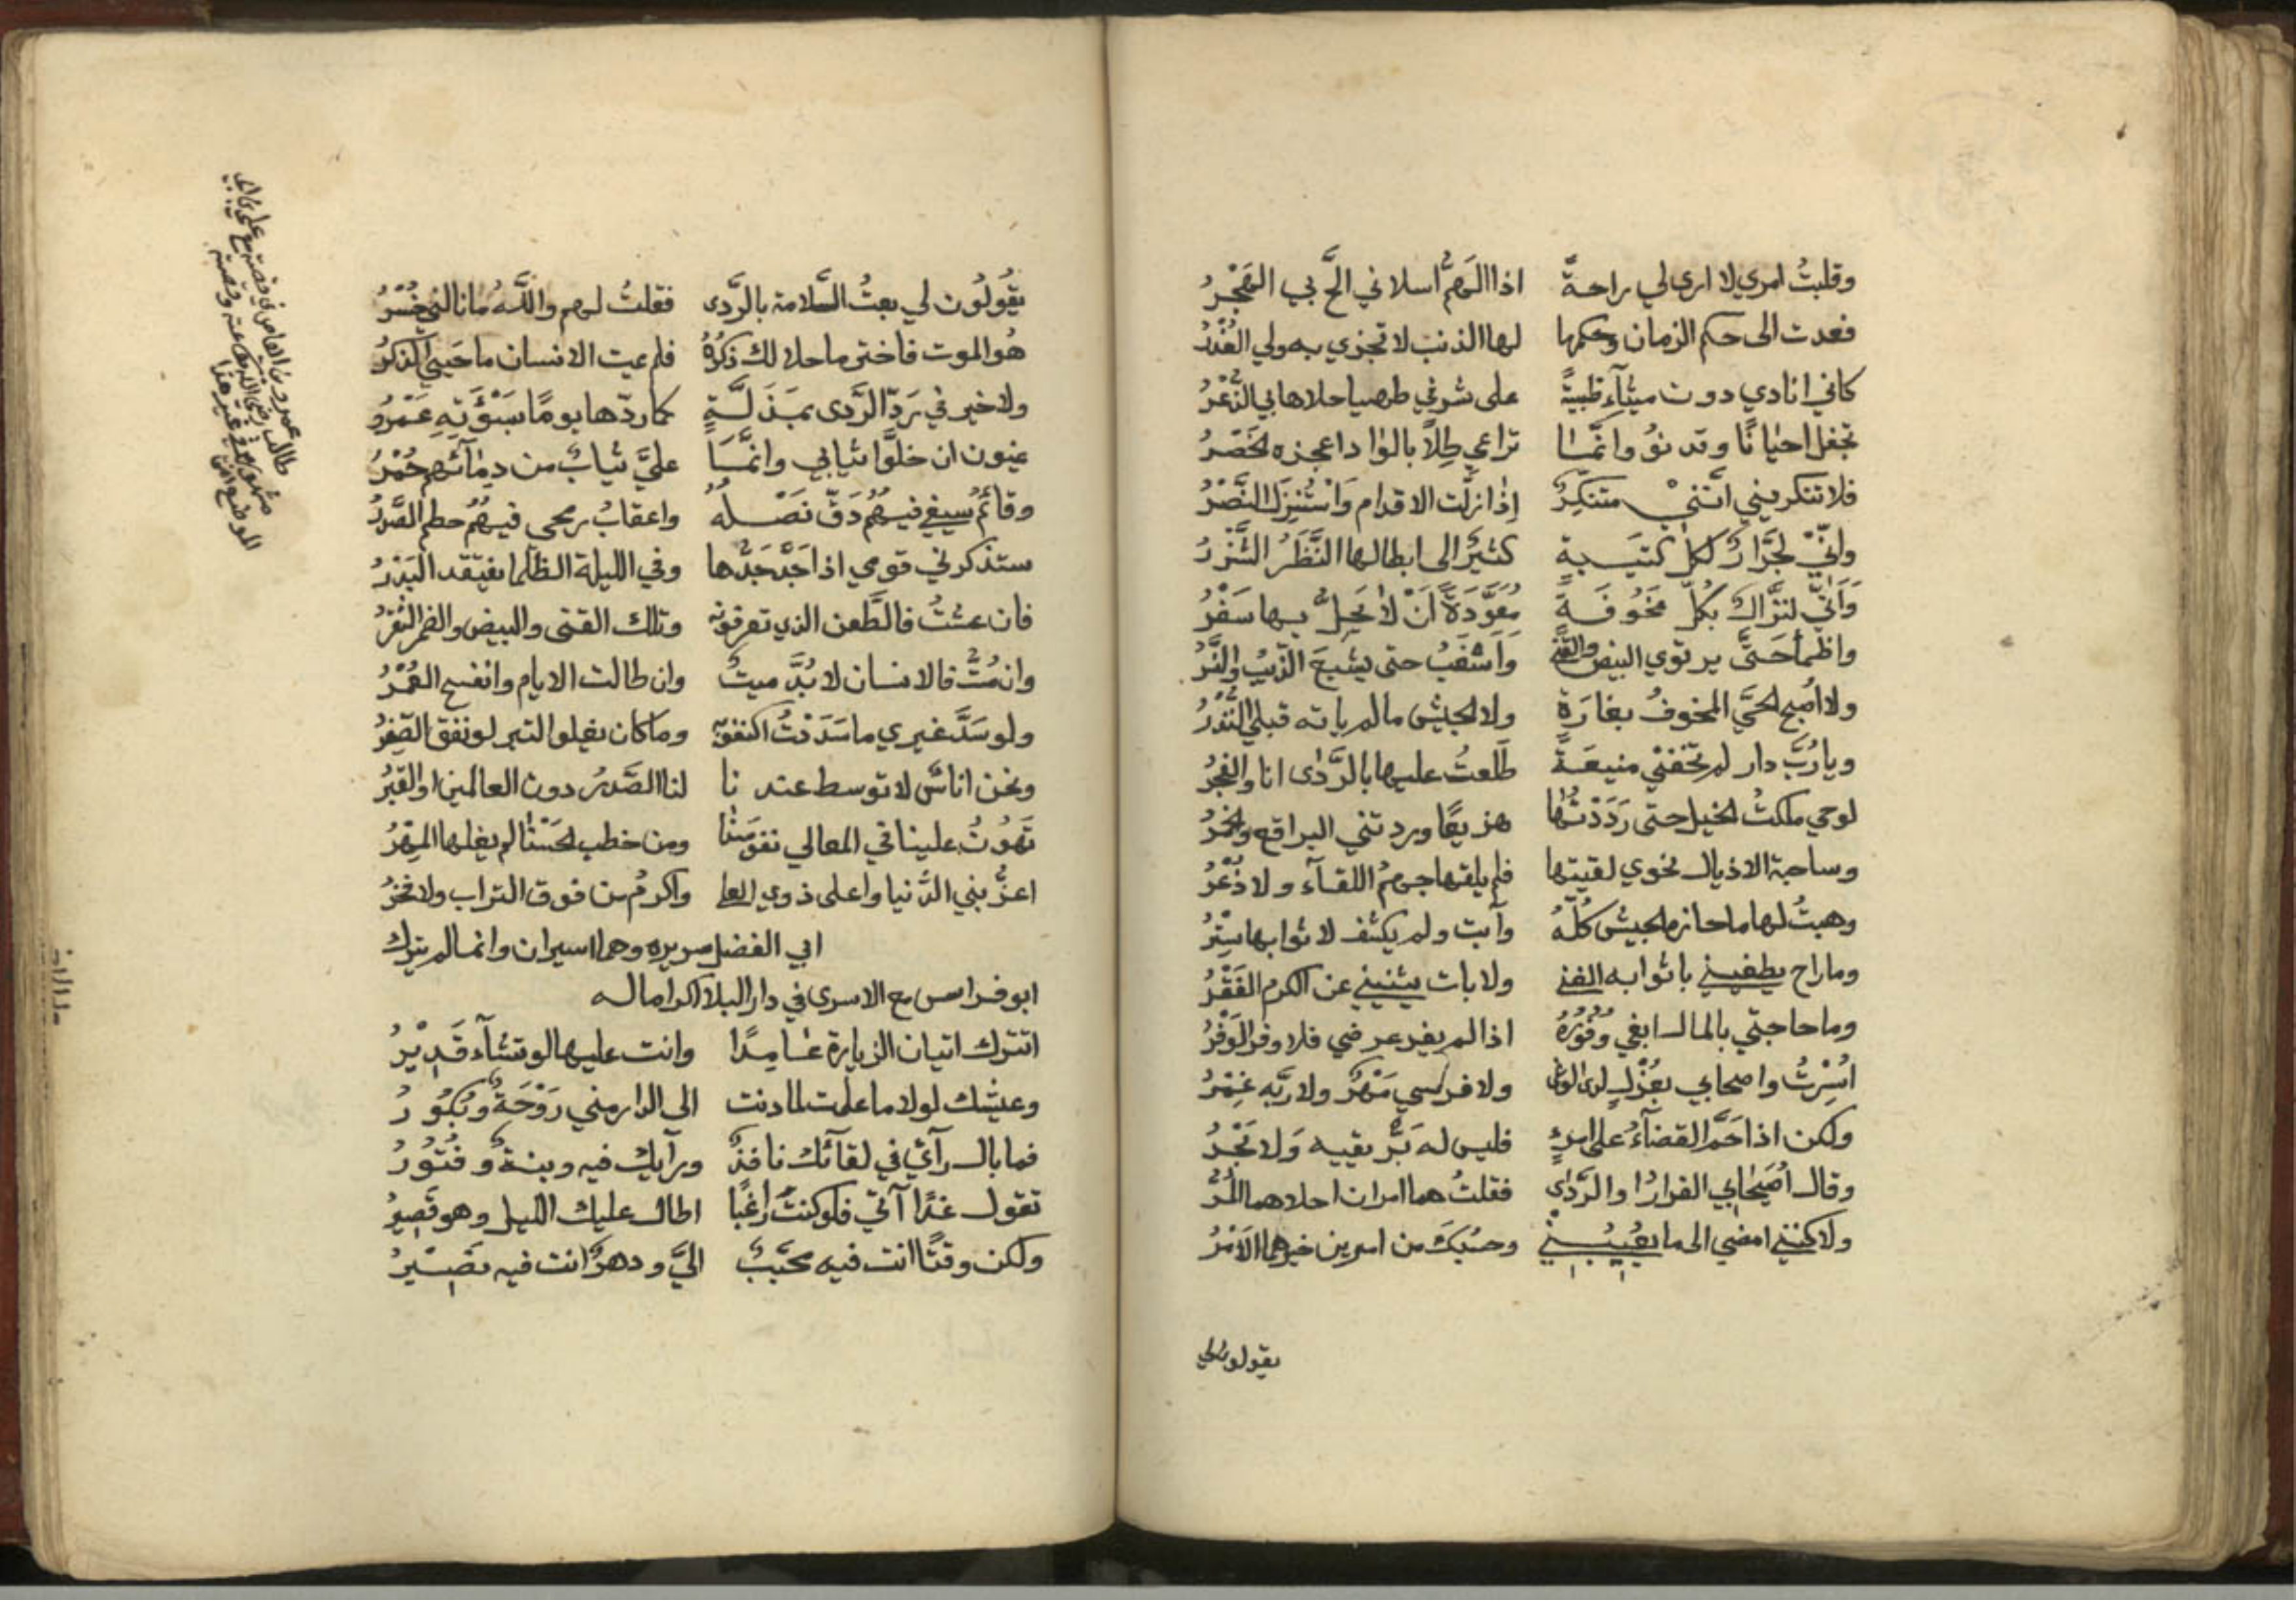 وقلبتُ امري لا ارى لي راحةً اذا الهمُّ اسلاني الحَّ بي الهَجْرُ
فعدت الى حكم الزمان وحكمها لها الذنب لا تجزي به ولي العُذْرُ
كاني انادي دون ميثآء ظبيةً على شرفٍ ظميا حلاها بي الذُّعْرُ
تجفل احيانًا وتدنوُ وانمَّا تراعي طِلاً بالواد اعجزه الخَصْرُ
فلا تنكريني انَّنيْ متنكِرٌ إذا زلَّت الاقدام وَاسْتُنِزلَ النَّصْرُ
وانّي لجَرَّارٌ لكل كتيبة كثيرٌ الى ابطالها النَّظَرُ الشَّزْرُ
وَاَنّي لنزَّالٌ بكلّ مَخُوفَةً مُعَوَّدَةً اَنْ لا يَحِلَّ بها سَفْرُ
واظمأ حَتىَّ يرتوي البيض والقنى وَاَسْغَبُ حتى يشبعَ الذّيبُ والنَّسْرُ
ولا اُصبح الحيَّ المخوفُ بغارَةٍ ولا الجيش مالم ياته قبلي النُّذْرُ
ويا رُبَّ دار لم تخفني منيعَةً طَلَعتُ عليها بالرَّدٰى انا والفجرُ
لوحي ملكتُ الخيل حتى رَدَدْتُها هزيمًا وردتني البراقع والخمرُ
وساحبة الاذيال نحوي لقيتها فلم يلقها جهمُ اللقآء ولا ذُعْرُ
وهبتُ لها ما حازه الجيشُ كُلَّهُ وآبت ولم يكشف لاثوابها سِتْرُ
وماراح يطغيني باثوابه الغنى ولا بات يثنيني عن الكرم الفَقْرُ
وما حاجتي بالمال ابغي وُفُورَهُ اذا لم يفر عرضي فلا وفر الوَفْرُ
اُسِرْتُ واصحابي بعُزْلٍ لدى الوغى ولا فرسي مَهْرٌ ولا ربّه غمْرُ
ولكن اذا حَمَّ القضآءُ على امرءٍ فليس له بَرٌّ يقيه وَلا بَحْرُ
وقال اُصَيْحابي الفرارُ او الرَّدٰى فقلتُ هما امران احلاهما المُرُّ
ولاكنني امضي الى ما يُعيبُني وحسْبُكَ من امرين خيرهما الاَمْرُ
يقولون لي
يقُولوُن لي بعتُ السَّلامة بالرَّدى فقلتُ لهم والله ما نالني خُسْرُ
هُو الموت فاختر ما حلا لك ذِكرُهُ فلم يمت الانسان ما حَييَ الذكرُ
ولا خير في رَدِّ الرَّدى بمَذَلَّةٍ كما ردّها يومًا بسَوْءَتِهِ عَمْرُو
يمنون ان خلَّوا ثيابي وانمَّا عليَّ ثيابٌ من دمآئهم حُمْرُ
وقائمُ سيفي فيهُمُ دَقَّ نَصْلُهُ واعقابُ رمحي فيهُم حطم الصَّدرُ
ستذكرني قومي اذا جَدَّ جَدُّها وفي الليلة الظلما يفتقد البَدْرُ
فان عشتُ فالطَّعن الذي تعرفونه وتلك القنى والبيض والضمر الشقْرُ
وان مُتُّ فالانسان لا بُدَّ ميتُ وان طالت الايام وانفسح العُمْرُ
ولو سَدَّ غيري ما سَدَدْتُ اكتفوا به وما كان يغلو التبر لو نفق الصِّفْرُ
ونحن اناسٌ لا توسط عند نا لنا الصَّدرُ دون العالمين او القَبْرُ
تَهوُنُ علينا في المعالي نفوسَنُا ومن خطب الحَسْنا لم يغلها المَهْرُ
اعزُّ بني الدُّنيا واعلى ذوي العلى واكرمُ من فوق التراب ولا فخرُ
ابي الفضل سريره وهما اسيران وانما لم يترك
ابو فراس مع الاسرى في دار البلا اكراما له
اتترك اتيان الزيارة عامِدًا وانت عليها لو تشآء قَدِيْرُ
وعيشك لولا ما علمت لما دنت الى الدار مني رَوْحَةٌ وبُكُورُ
فما بال رآئي في لقآئك نافذٌ ورآيك فيه ونيةٌ وفُتُورُ
تقول غدًا آتي فلو كنتَ راغبًا اطال عليك الليل وهو قَصِيرُ
ولكن وقتًا انت فيه محبَّبٌ اليَّ ودهرٌ انت فيه نَصِيْرُ